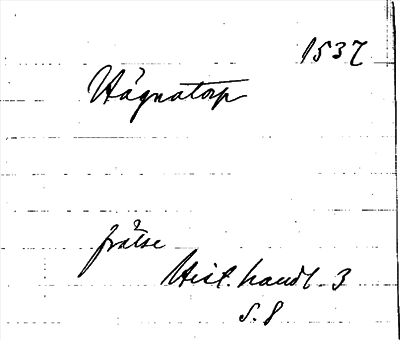 1537
Hägnatorp
frälse
Hist. handl 3
S. 8